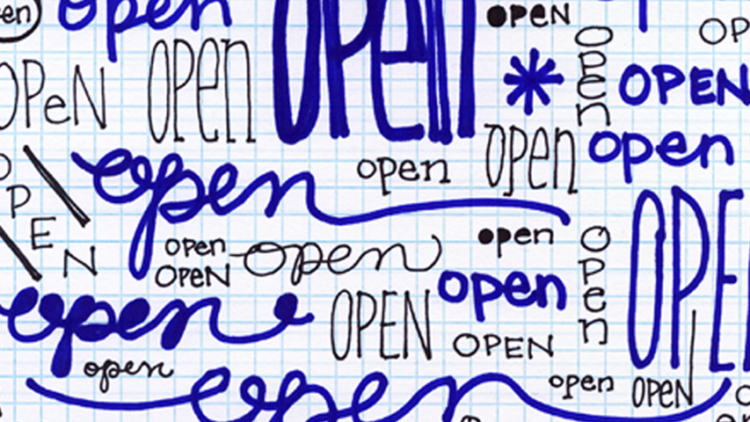 open
OPeN
OPEN
OPen
OPeN
open
OPEN
OPeN
OPen
open
open
OPen
open
OPEN
open
OPeN
open
open
open
open
open
OPEN
OPEN
open
open
open
OPEN